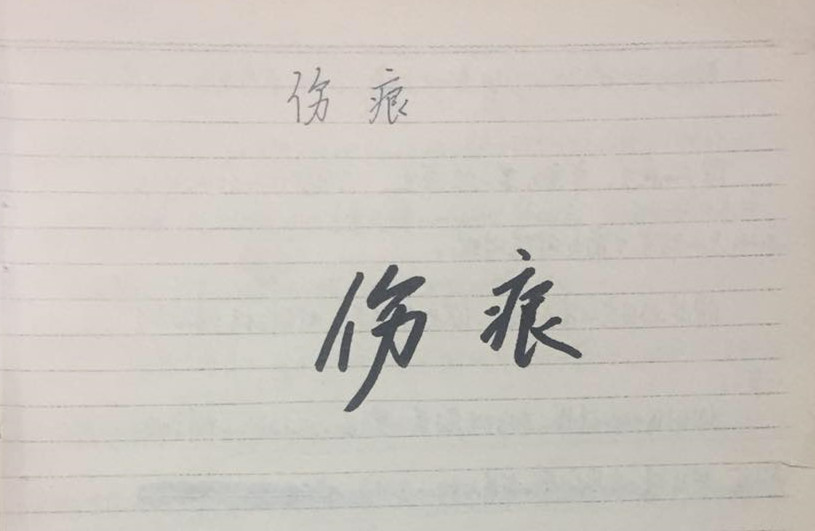 伤痕
伤痕